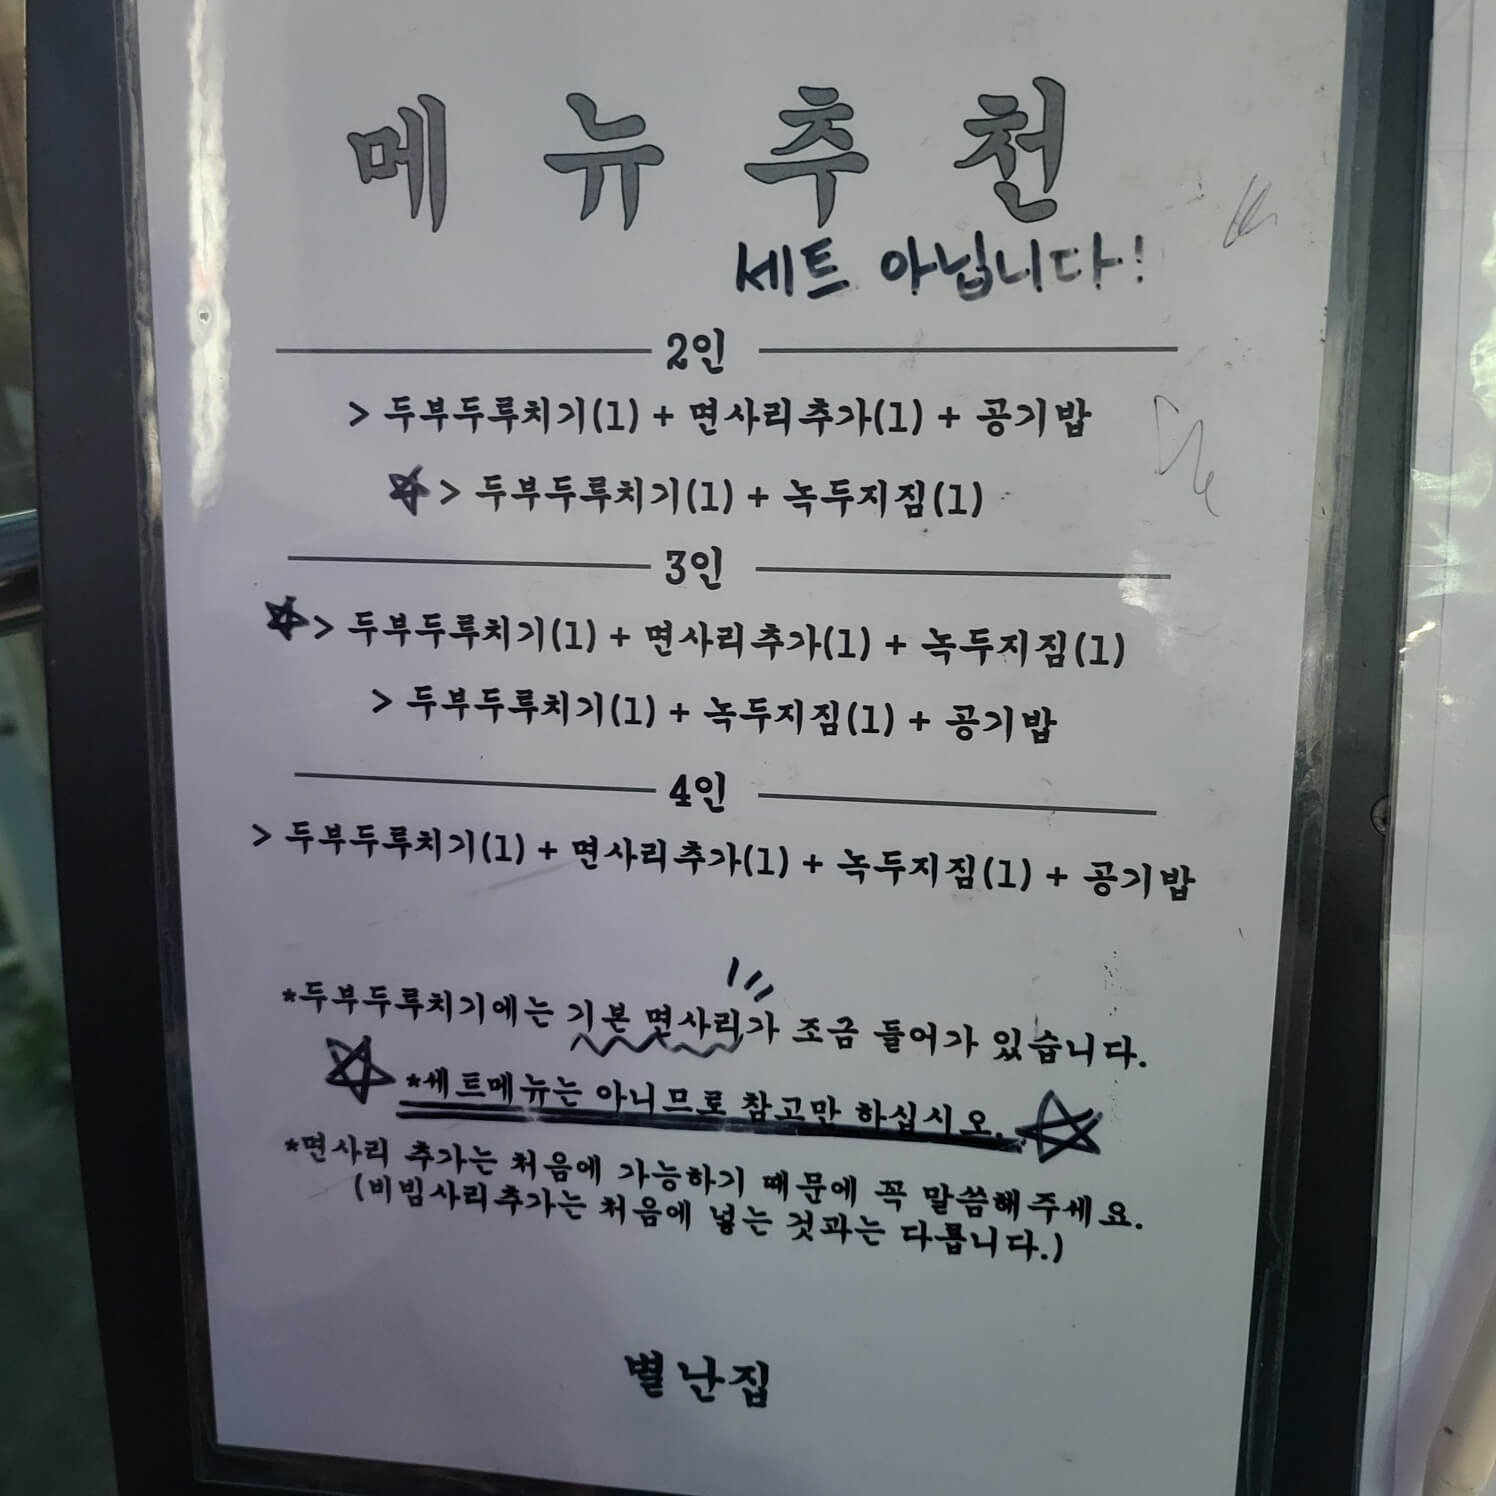 메뉴추천
세트 아닙니다!
2인
> 두부두루치기(1) + 면사리추가(1) + 공기밥
☆ > 두부두루치기(1) + 녹두지짐(1)
3인
☆ > 두부두루치기(1) + 면사리추가(1) + 녹두지짐(1)
> 두부두루치기(1) + 녹두지짐(1) + 공기밥
4인
> 두부두루치기(1) + 면사리추가(1) + 녹두지짐(1) + 공기밥
*두부두루치기에는 기본 면사리가 조금 들어가 있습니다.
☆ *세트메뉴는 아니므로 참고만 하십시오. ☆
*면사리 추가는 처음에 가능하기 때문에 꼭 말씀해주세요.
(비빔사리추가는 처음에 넣는 것과는 다릅니다.)
별난집